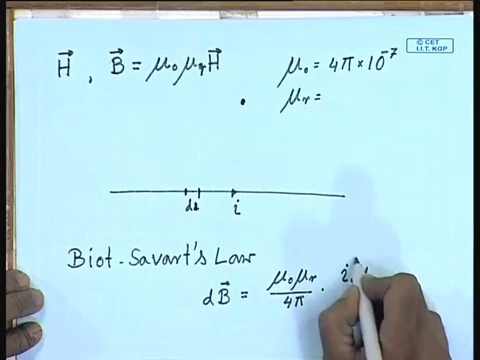 © CET
I.I.T. KGP
H⃗ , B⃗ = μ₀μᵣH⃗ μ₀ = 4π×10⁻⁷
μᵣ =
dl i
Biot-Savart's Law
dB⃗ = μ₀μᵣ/4π · i